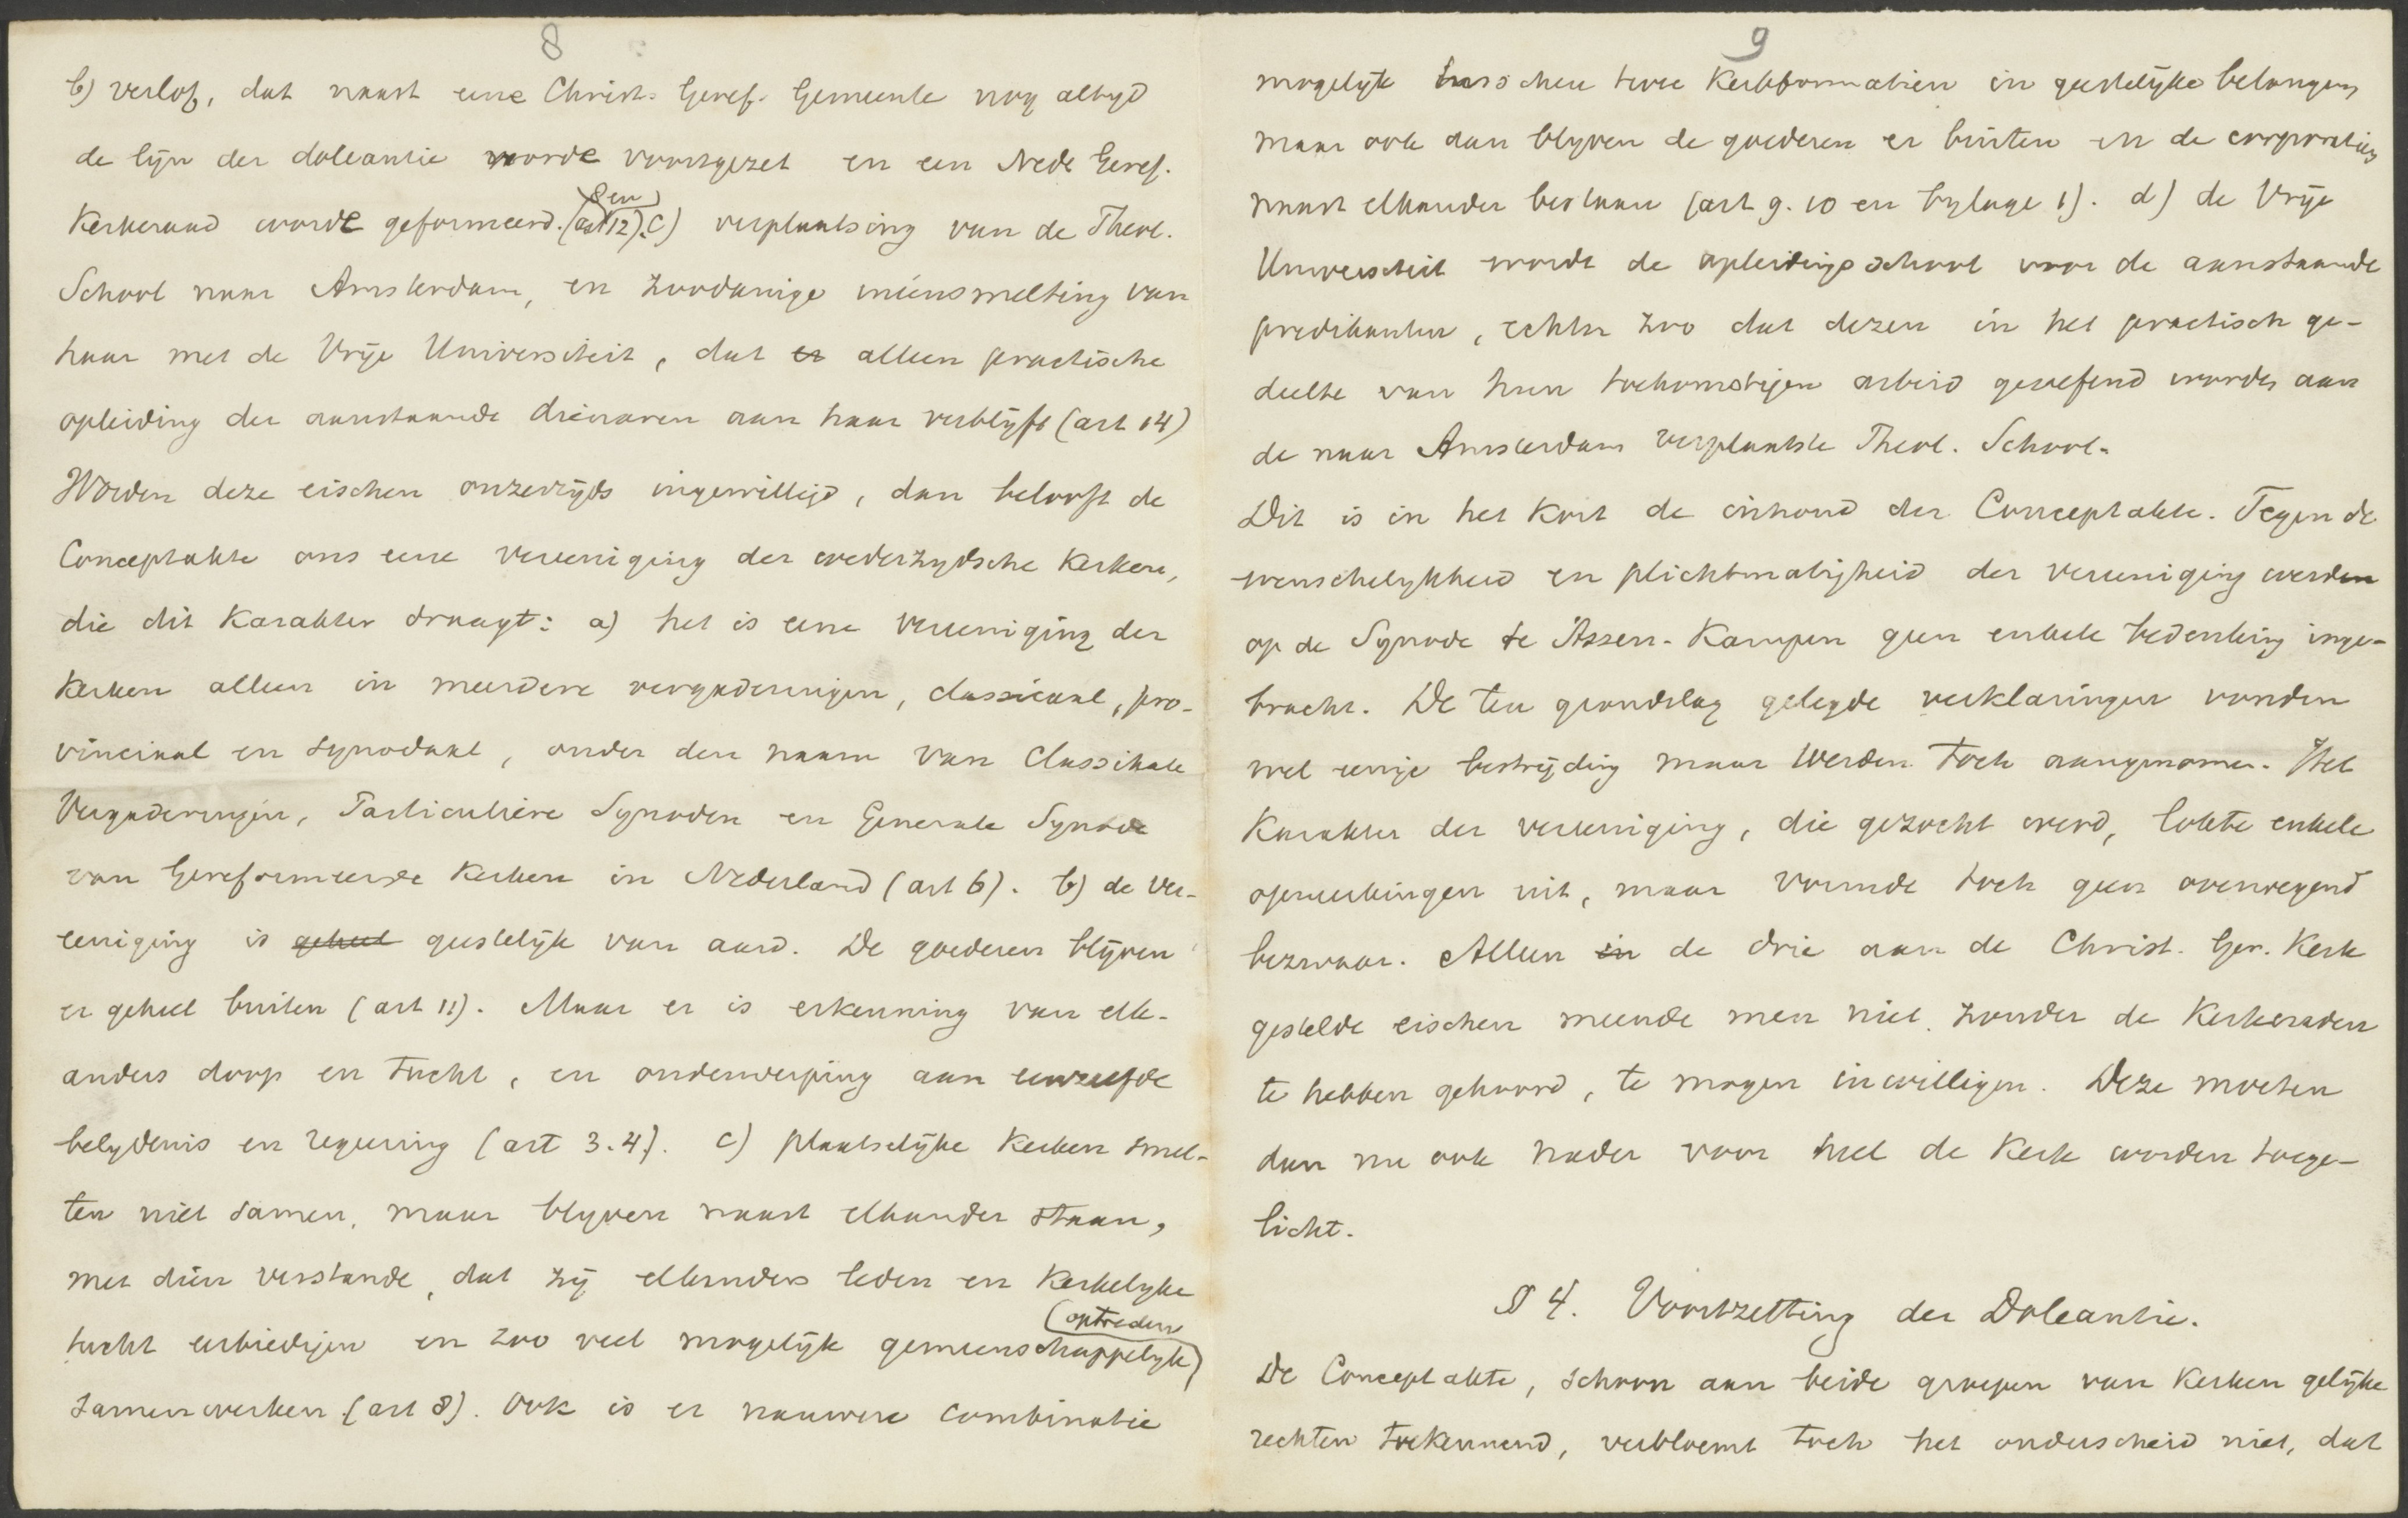 8
b) verlof, dat naast eene Christ. Geref. Gemeente nog altyd
de lyn der doleantie worde voortgezet en een Nede Geref.
Kerkeraad worde geformeerd. (art 8 en 12). c) verplaatsing van de Theol.
School naar Amsterdam, en zoodanige ineensmelting van
haar met de Vrije Universiteit, dat er alleen practische
opleiding der aanstaande dienaren aan haar verblijft (art 14)
Worden deze eischen onzerzijds ingewilligd, dan belooft de
Conceptakte ons eene vereeniging der wederzydsche Kerken,
die dit Karakter draagt: a) het is eene vereeniging der
Kerken alleen in meerdere vergaderingen, classicaal, pro-
vinciaal en synodaal, onder den naam van Classikale
Vergaderingen, Particuliere Synoden en Generale Synode
van Gereformeerde Kerken in Nederland (art 6). b) de ver-
eeniging is geheel geestelijk van aard. De goederen blijven
er geheel buiten (art 11). Maar er is erkenning van elk-
anders doop en tucht, en onderwerping aan eenzelfde
belydenis en regeering (art 3.4). c) plaatselijke Kerken smel-
ten niet samen, maar blyven naast elkander staan,
met dien verstande, dat zij elkanders leden en Kerkelyke
tucht eerbiedigen en zoo veel mogelijk gemeenschappelyk optreden
samenwerken (art 8). Ook is er nauwere combinatie
9
mogelijk tusschen twee Kerkformatien in geestelijke belangen,
maar ook dan blyven de goederen er buiten en de corporaties
naast elkander bestaan (art 9. 10 en bylage 1). d) de Vrije
Universiteit wordt de opleidingsschool voor de aanstaande
predikanten, echter zoo dat dezen in het practisch ge-
deelte van hun toekomstigen arbeid geoefend worden aan
de naar Amsterdam verplaatste Theol. School.
Dit is in het Kort de inhoud der Conceptakte. Tegen de
wenschelykheid en plichtmatigheid der vereeniging werden
op de Synode te Assen-Kampen geen enkele bedenking inge-
bracht. De ten grondslag gelegde verklaringen vonden
wel eenige bestrijding maar werden toch aangenomen. Het
Karakter der vereeniging, die gezocht werd, lokte enkele
opmerkingen uit, maar vormde toch geen overwegend
bezwaar. Alleen in de drie aan de Christ. Ger. Kerk
gestelde eischen meende men niet, zonder de Kerkeraden
te hebben gehoord, te mogen inwilligen. Deze moeten
dan nu ook nader voor heel de Kerk worden toege-
licht.
§ 4. Voortzetting der Doleantie.
De Conceptakte, schoon aan beide groepen van Kerken gelijke
rechten toekennend, verbloemt toch het onderscheid niet, dat